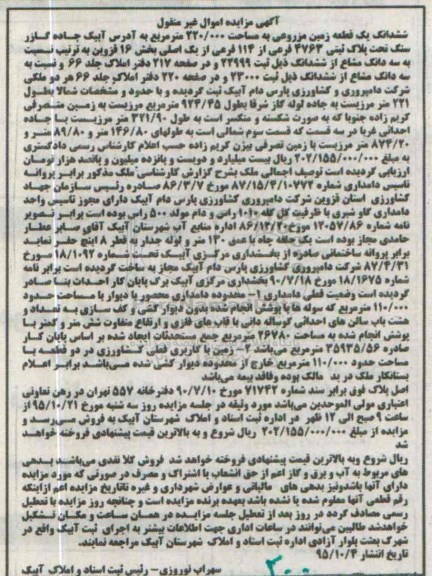 آگهی مزایده اموال غیر منقول
ششدانگ یک قطعه زمین مزروعی به مساحت ۲۲۰/۰۰۰ مترمربع به آدرس آبیک جاده گازر
سنگ تحت پلاک ثبتی ۴۷۶۳ فرعی از ۱۱۴ فرعی از یک اصلی بخش ۱۶ قزوین به ترتیب نسبت
به سه دانگ مشاع از ششدانگ ذیل ثبت ۲۲۹۹۹ و در صفحه ۲۱۷ دفتر املاک جلد ۶۶ و نسبت به
سه دانگ مشاع از ششدانگ ذیل ثبت ۲۳۰۰۰ و در صفحه ۲۲۰ دفتر املاک جلد ۶۶ هر دو ملکی
شرکت دامپروری و کشاورزی پارس دام آبیک ثبت گردیده و با حدود و مشخصات شمالا بطول
۲۲۱ متر مرزیست به جاده لوله گاز شرقا بطول ۹۲۴/۴۵ مترمربع مرزیست به زمین متصرفی
کریم زاده جنوبا که به صورت شکسته و منکسر است به طول ۳۲۱/۹۰ متر مرزیست با جاده
احداثی غربا در سه قسمت که قسمت سوم شمالی است به طولهای ۱۴۶/۸۰ متر و ۸۹/۸۰ متر و
۸۷۴/۲۰ متر مرزیست با زمین تصرفی بیژن کریم زاده حسب اعلام کارشناس رسمی دادگستری
به مبلغ ۲۰۲/۱۵۵/۰۰۰/۰۰۰ ریال بیست میلیارد و دویست و پانزده میلیون و پانصد هزار تومان
ارزیابی گردیده است توصیف اجمالی ملک بشرح گزارش کارشناسی: ملک مذکور برابر پروانه
تاسیس دامداری شماره ۸۷/۱۵/۴/۱۰۷۷۲ مورخ ۸۶/۳/۷ صادره رئیس سازمان جهاد
کشاورزی استان قزوین شرکت دامپروری کشاورزی پارس دام آبیک دارای مجوز تاسیس واحد
دامداری گاو شیری با ظرفیت کل گله ۱۰۱۰ راس و دام مولد ۵۰۰ راس بوده است برابر تصویر
نامه شماره ۱۳۰۵۷/۸۶ مورخ ۸۶/۱۲/۲۰ اداره منابع آب شهرستان آبیک آقای صابر عطار
حامدی مجاز بوده است یک حلقه چاه با عمق ۱۳۰ متر و لوله جدار به قطر ۸ اینچ حفر نماید
برابر پروانه ساختمانی صادره از بخشداری مرکزی آبیک تحت شماره ۱۸/۱۰۹۲ مورخ
۸۷/۴/۳۱ شرکت دامپروری کشاورزی پارس دام آبیک مجاز به ساخت گردیده است برابر نامه
شماره ۱۸/۱۶۷۵ مورخ ۹۰/۷/۱۸ بخشداری مرکزی آبیک برگ پایان کار احداث بنا صادر
گردیده است وضعیت فعلی دامداری ۱- محدوده دامداری محصور با دیوار با مساحت حدود
۱۱۰/۰۰۰ مترمربع که سوله ها با پوشش انجام شده بدون دیوار کشی و کف سازی به تعداد و
هشت باب سالن های احداثی گوساله دانی با قاب های فلزی و ارتفاع متفاوت شش متر و کمتر با
پوشش انجام شده به مساحت ۲۶۷۸۰ مترمربع جمع مستحدثات ایجاد شده بر اساس پایان کار
صادره ۳۵۹۳۵/۸۶ مترمربع می باشد ۲- زمین با کاربری فعلی کشاورزی در دو قطعه با
مساحت حدود ۱۱۰/۰۰۰ مترمربع خارج از محدوده دیوار کشی شده می باشد برابر اعلام
بستانکار ملک در ید مالک بوده وفاقد بیمه می باشد
اصل پلاک فوق برابر سند شماره ۷۱۷۴۲ مورخ ۹۰/۷/۱۰ دفترخانه ۵۵۷ تهران در رهن تعاونی
اعتباری مولی الموحدین می باشد مورد وثیقه در جلسه مزایده روز سه شنبه مورخ ۹۵/۱۰/۲۱ از
ساعت ۹ صبح الی ۱۲ ظهر در اداره ثبت اسناد و املاک شهرستان آبیک به فروش می رسد و
مزایده از مبلغ ۲۰۲/۱۵۵/۰۰۰/۰۰۰ ریال شروع و به بالاترین قیمت پیشنهادی فروخته خواهد
شد
ریال شروع وبه بالاترین قیمت پیشنهادی فروخته خواهد شد فروش کلا نقدی می باشد بدهی
های مربوط به آب و برق و گاز اعم از حق انشعاب یا اشتراک و مصرف در صورتی که مورد مزایده
دارای آنها باشد ونیز بدهی های مالیاتی و عوارض شهرداری و غیره تا تاریخ مزایده اعم از اینکه
رقم قطعی آنها معلوم شده یا نشده باشد بعهده برنده مزایده است و چنانچه روز مزایده با تعطیل
رسمی مصادف گردد در روز بعد از تعطیل جلسه مزایده در همان ساعت و مکان تشکیل
خواهدشد طالبین می توانند در ساعات اداری جهت اطلاعات بیشتر به اجرای ثبت آبیک واقع در
شهرک بعثت بلوار آزادی اداره ثبت اسناد و املاک شهرستان آبیک مراجعه نمایند.
تاریخ انتشار ۹۵/۱۰/۴
سهراب نوروزی - رئیس ثبت اسناد و املاک آبیک